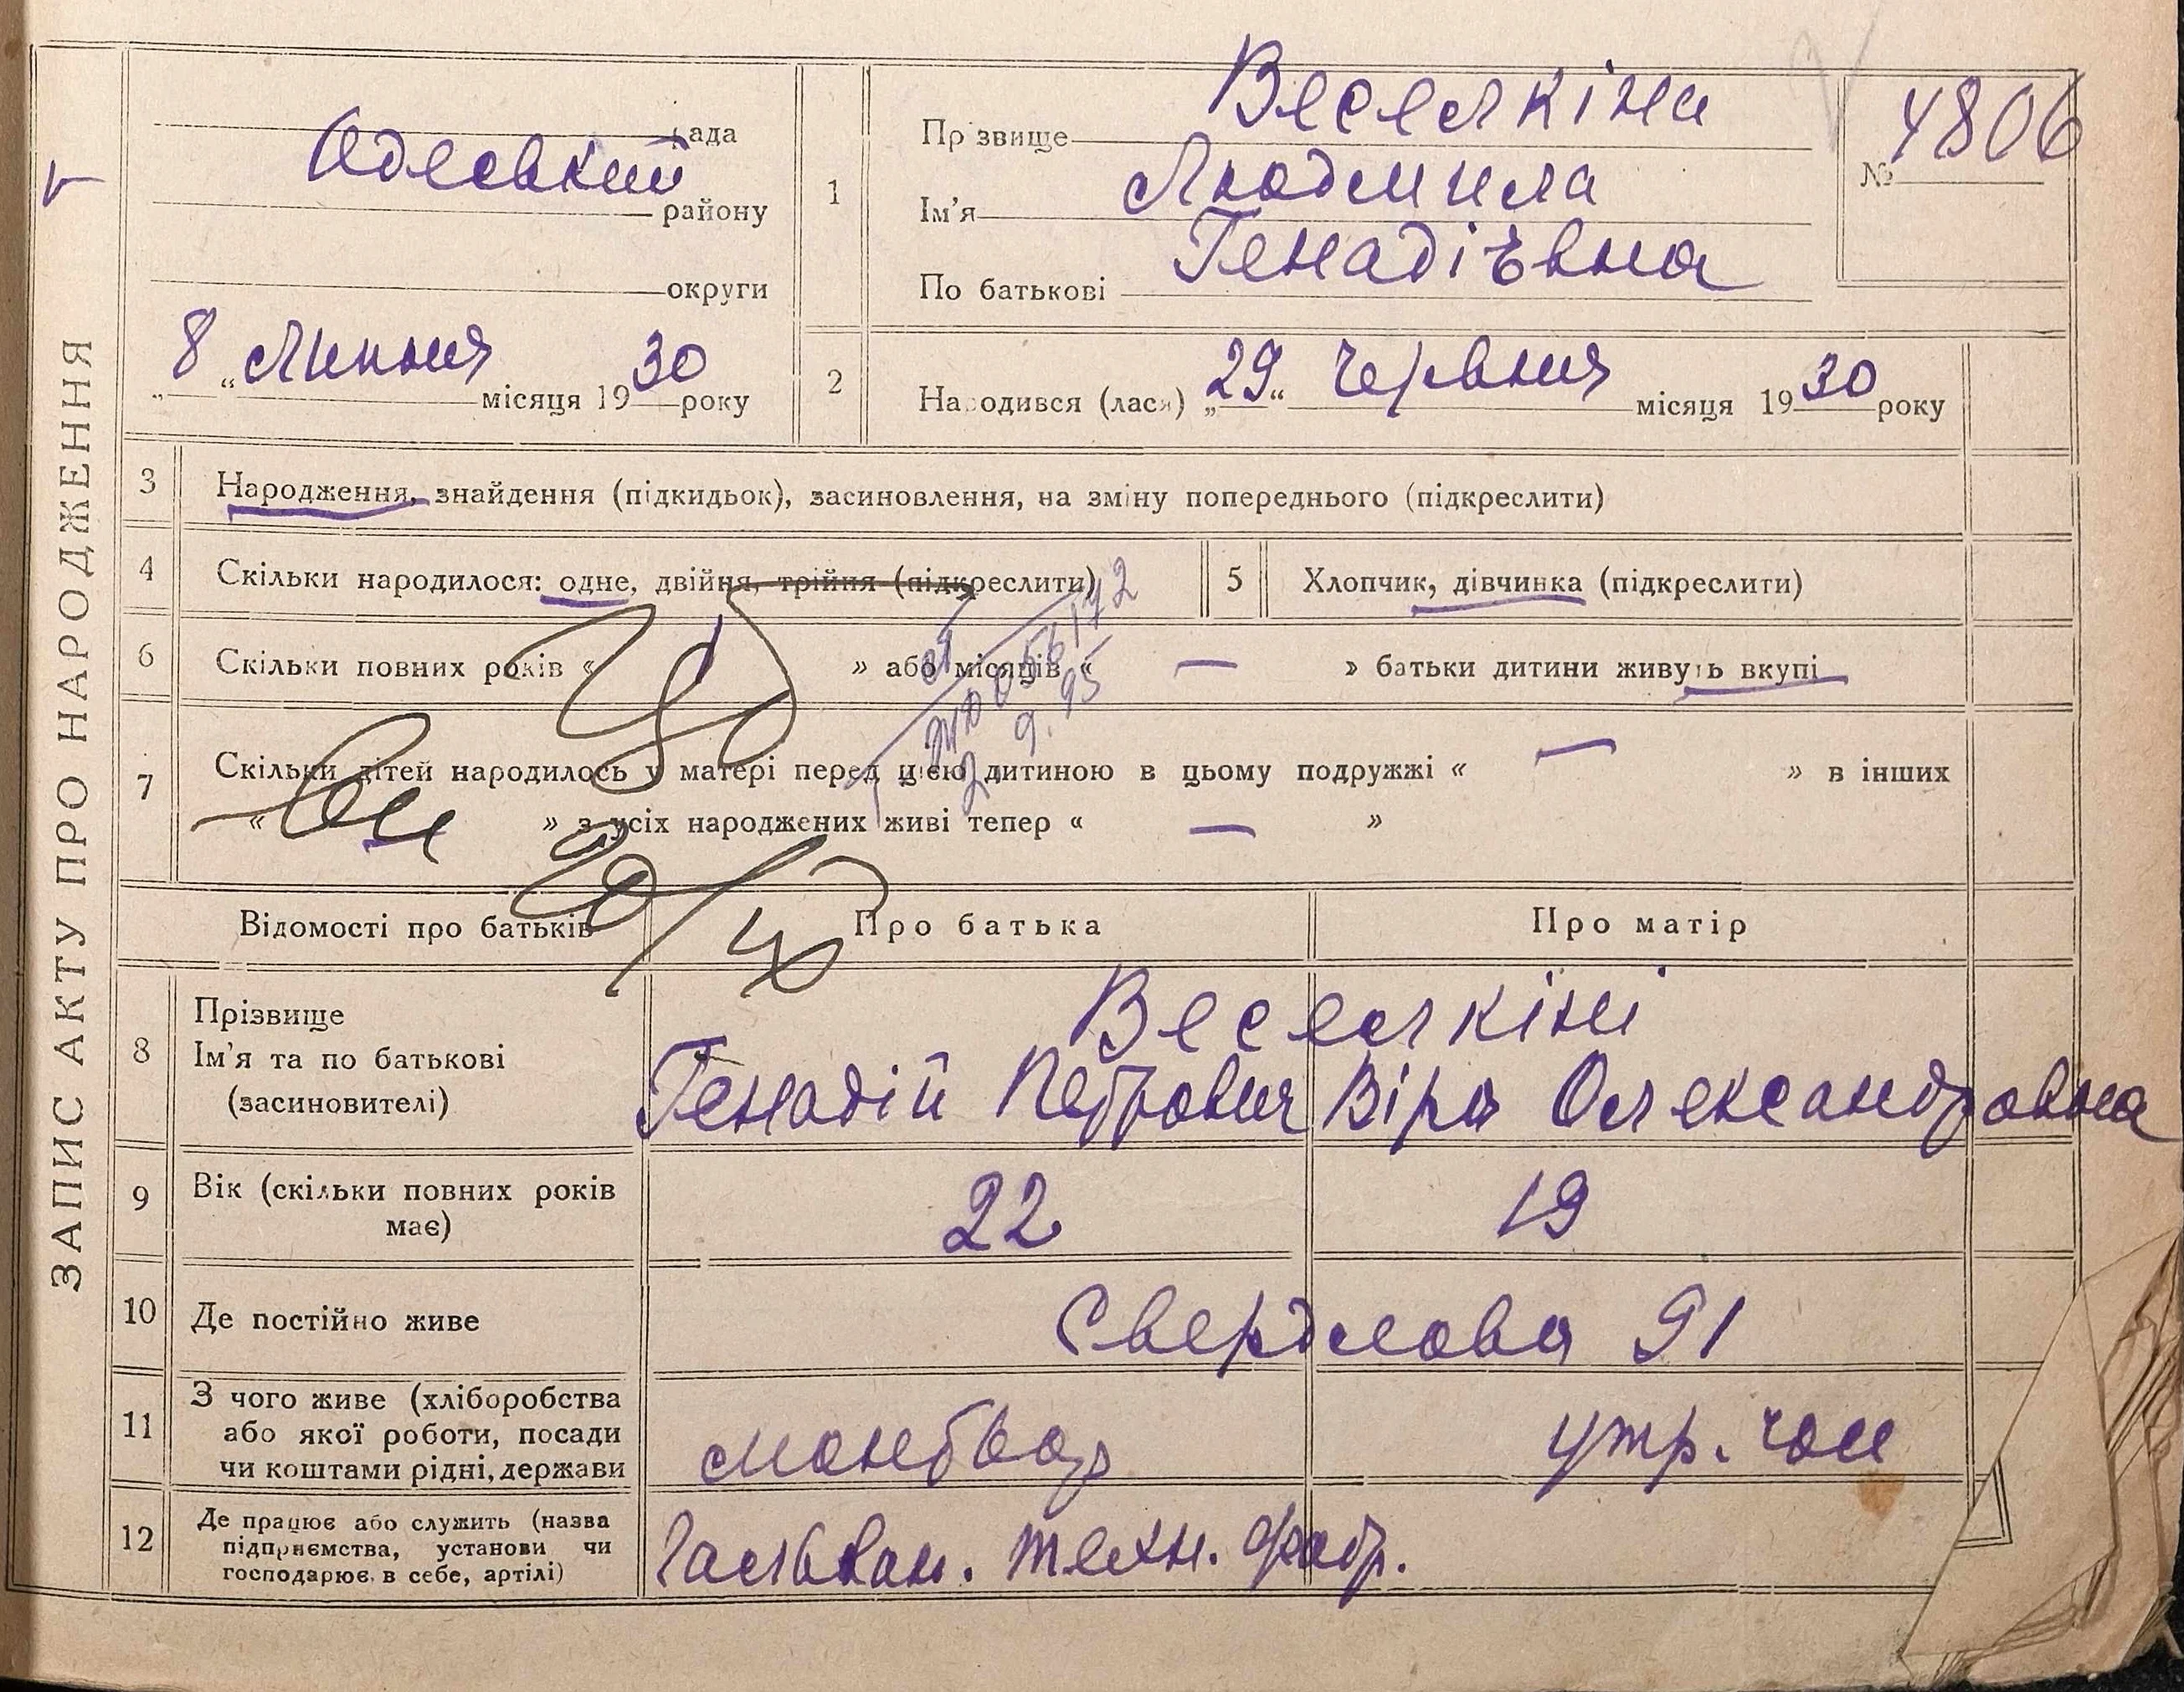 ЗАПИС АКТУ ПРО НАРОДЖЕННЯ
рада
Одеський
району
округи
„ 8 “ Липня місяця 19 30 року
1
Прізвище Веселкіна
Ім'я Людмила
По батькові Генадіївна
№ 4806
2
Народився (лася) „ 29 “ червня місяця 19 30 року
3 Народження, знайдення (підкидьок), засиновлення, на зміну попереднього (підкреслити)
4 Скільки народилося: одне, двійня, трійня (підкреслити)
5 Хлопчик, дівчинка (підкреслити)
6 Скільки повних років « 1 » або місяців « — » батьки дитини живуть вкупі
7 Скільки дітей народилось у матері перед цією дитиною в цьому подружжі « — » в інших
« — » з усіх народжених живі тепер « — »
2 9.95
Відомості про батьків Про батька Про матір
8 Прізвище
Ім'я та по батькові
(засиновителі)
Веселкіни
Генадій Петрович Віра Олександровна
9 Вік (скільки повних років
має)
22 19
10 Де постійно живе Свердлова 91
11 З чого живе (хліборобства
або якої роботи, посади
чи коштами рідні, держави
утр. чол
12 Де працює або служить (назва
підприємства, установи чи
господарює в себе, артілі)
Гальван. техн. фабр.